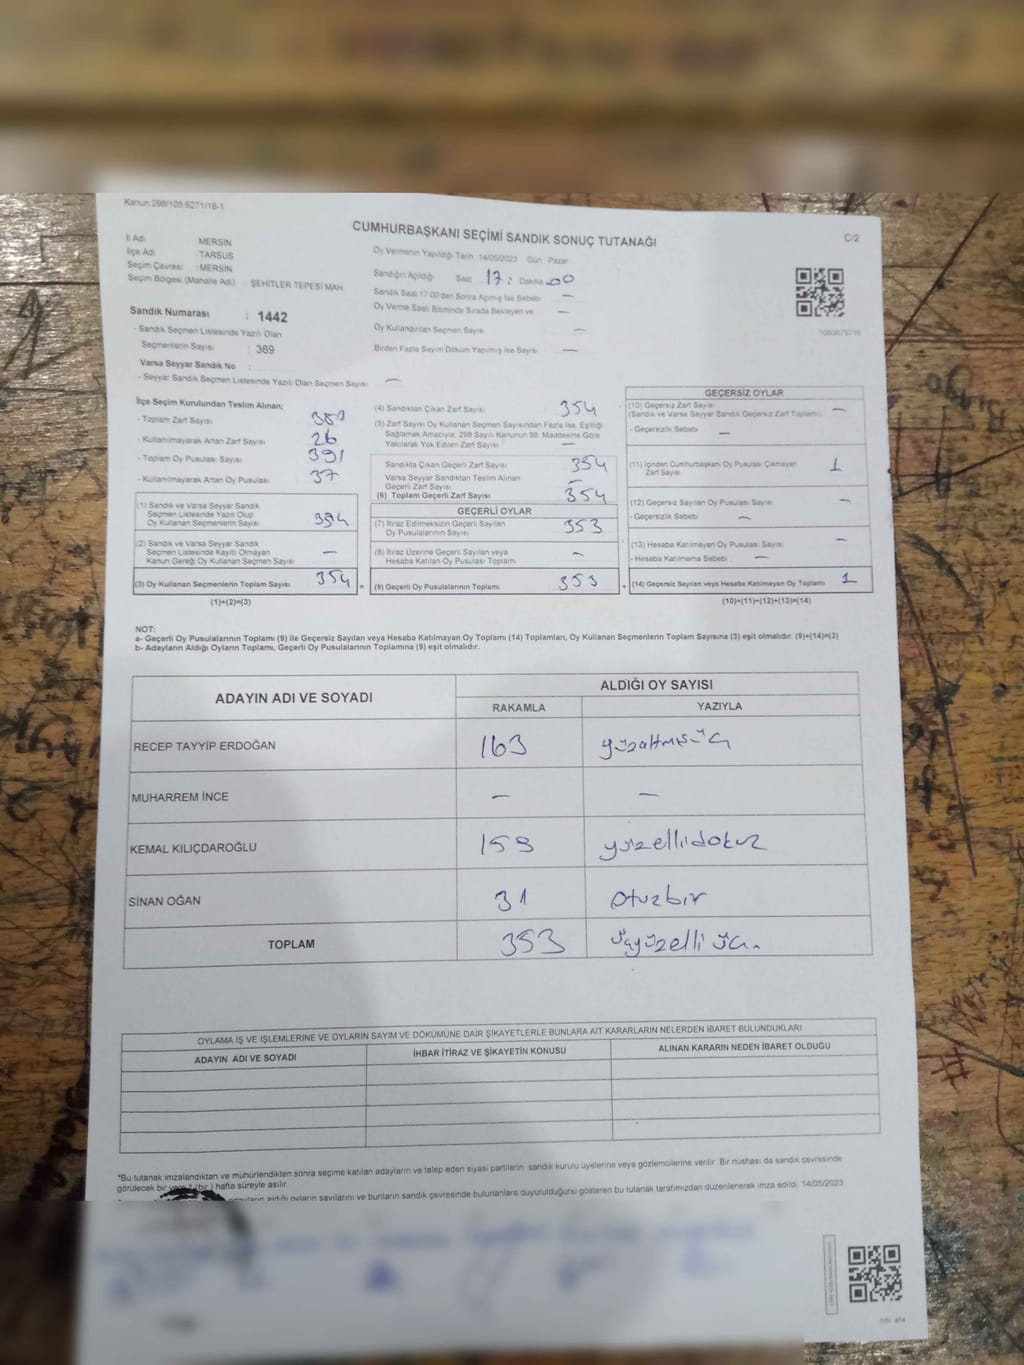 Kanun:298/105;6271/18-1
CUMHURBAŞKANI SEÇİMİ SANDIK SONUÇ TUTANAĞI
C/2
İl Adı : MERSİN
İlçe Adı : TARSUS
Seçim Çevresi : MERSİN
Seçim Bölgesi (Mahalle Adı) : ŞEHİTLER TEPESİ MAH
Sandık Numarası : 1442
- Sandık Seçmen Listesinde Yazılı Olan
Seçmenlerin Sayısı : 369
Varsa Seyyar Sandık No :
- Seyyar Sandık Seçmen Listesinde Yazılı Olan Seçmen Sayısı —
Oy Vermenin Yapıldığı Tarih 14/05/2023 Gün : Pazar
Sandığın Açıldığı Saat 17: Dakika 00
Sandık Saat 17:00'den Sonra Açılmış İse Sebebi —
Oy Verme Saati Bitiminde Sırada Bekleyen ve —
Oy Kullandırılan Seçmen Sayısı —
Birden Fazla Sayım Döküm Yapılmış İse Sayısı —
İlçe Seçim Kurulundan Teslim Alınan;
- Toplam Zarf Sayısı
- Kullanılmayarak Artan Zarf Sayısı 26
- Toplam Oy Pusulası Sayısı 391
- Kullanılmayarak Artan Oy Pusulası 37
(1) Sandık ve Varsa Seyyar Sandık
Seçmen Listesinde Yazılı Olup
Oy Kullanan Seçmenlerin Sayısı 354
(2) Sandık ve Varsa Seyyar Sandık
Seçmen Listesinde Kayıtlı Olmayan
Kanun Gereği Oy Kullanan Seçmen Sayısı —
(3) Oy Kullanan Seçmenlerin Toplam Sayısı 354 =
(1)+(2)=(3)
(4) Sandıktan Çıkan Zarf Sayısı 354
(5) Zarf Sayısı Oy Kullanan Seçmen Sayısından Fazla İse, Eşitliği
Sağlamak Amacıyla; 298 Sayılı Kanunun 98. Maddesine Göre
Yakılarak Yok Edilen Zarf Sayısı —
Sandıkta Çıkan Geçerli Zarf Sayısı 354
Varsa Seyyar Sandıktan Teslim Alınan
Geçerli Zarf Sayısı —
(6) Toplam Geçerli Zarf Sayısı 354
GEÇERLİ OYLAR
(7) İtiraz Edilmeksizin Geçerli Sayılan
Oy Pusulalarının Sayısı 353
(8) İtiraz Üzerine Geçerli Sayılan veya
Hesaba Katılan Oy Pusulası Toplamı —
(9) Geçerli Oy Pusulalarının Toplamı 353 +
GEÇERSİZ OYLAR
(10) Geçersiz Zarf Sayısı
(Sandık ve Varsa Seyyar Sandık Geçersiz Zarf Toplamı) —
- Geçersizlik Sebebi —
(11) İçinden Cumhurbaşkanı Oy Pusulası Çıkmayan
Zarf Sayısı 1
(12) Geçersiz Sayılan Oy Pusulası Sayısı —
- Geçersizlik Sebebi —
(13) Hesaba Katılmayan Oy Pusulası Sayısı —
- Hesaba Katılmama Sebebi —
(14) Geçersiz Sayılan veya Hesaba Katılmayan Oy Toplamı 1
(10)+(11)+(12)+(13)=(14)
NOT:
a- Geçerli Oy Pusulalarının Toplamı (9) ile Geçersiz Sayılan veya Hesaba Katılmayan Oy Toplamı (14) Toplamları, Oy Kullanan Seçmenlerin Toplam Sayısına (3) eşit olmalıdır. (9)+(14)=(3)
b- Adayların Aldığı Oyların Toplamı, Geçerli Oy Pusulalarının Toplamına (9) eşit olmalıdır.
ADAYIN ADI VE SOYADI
ALDIĞI OY SAYISI
RAKAMLA YAZIYLA
RECEP TAYYİP ERDOĞAN 163 yüzaltmışüç
MUHARREM İNCE — —
KEMAL KILIÇDAROĞLU 159 yüzellidokuz
SİNAN OĞAN 31 otuzbir
TOPLAM 353 üçyüzelli üç.
OYLAMA İŞ VE İŞLEMLERİNE VE OYLARIN SAYIM VE DÖKÜMÜNE DAİR ŞİKAYETLERLE BUNLARA AİT KARARLARIN NELERDEN İBARET BULUNDUKLARI
ADAYIN ADI VE SOYADI İHBAR İTİRAZ VE ŞİKAYETİN KONUSU ALINAN KARARIN NEDEN İBARET OLDUĞU
*Bu tutanak imzalandıktan ve mühürlendikten sonra seçime katılan adayların ve talep eden siyasi partilerin sandık kurulu üyelerine veya gözlemcilerine verilir. Bir nüshası da sandık çevresinde
görülecek bir yere 1 (bir) hafta süreyle asılır.
aldığı oyların sayılarını ve bunların sandık çevresinde bulunanlara duyurulduğunu gösteren bu tutanak tarafımızdan düzenlenerek imza edildi. 14/05/2023